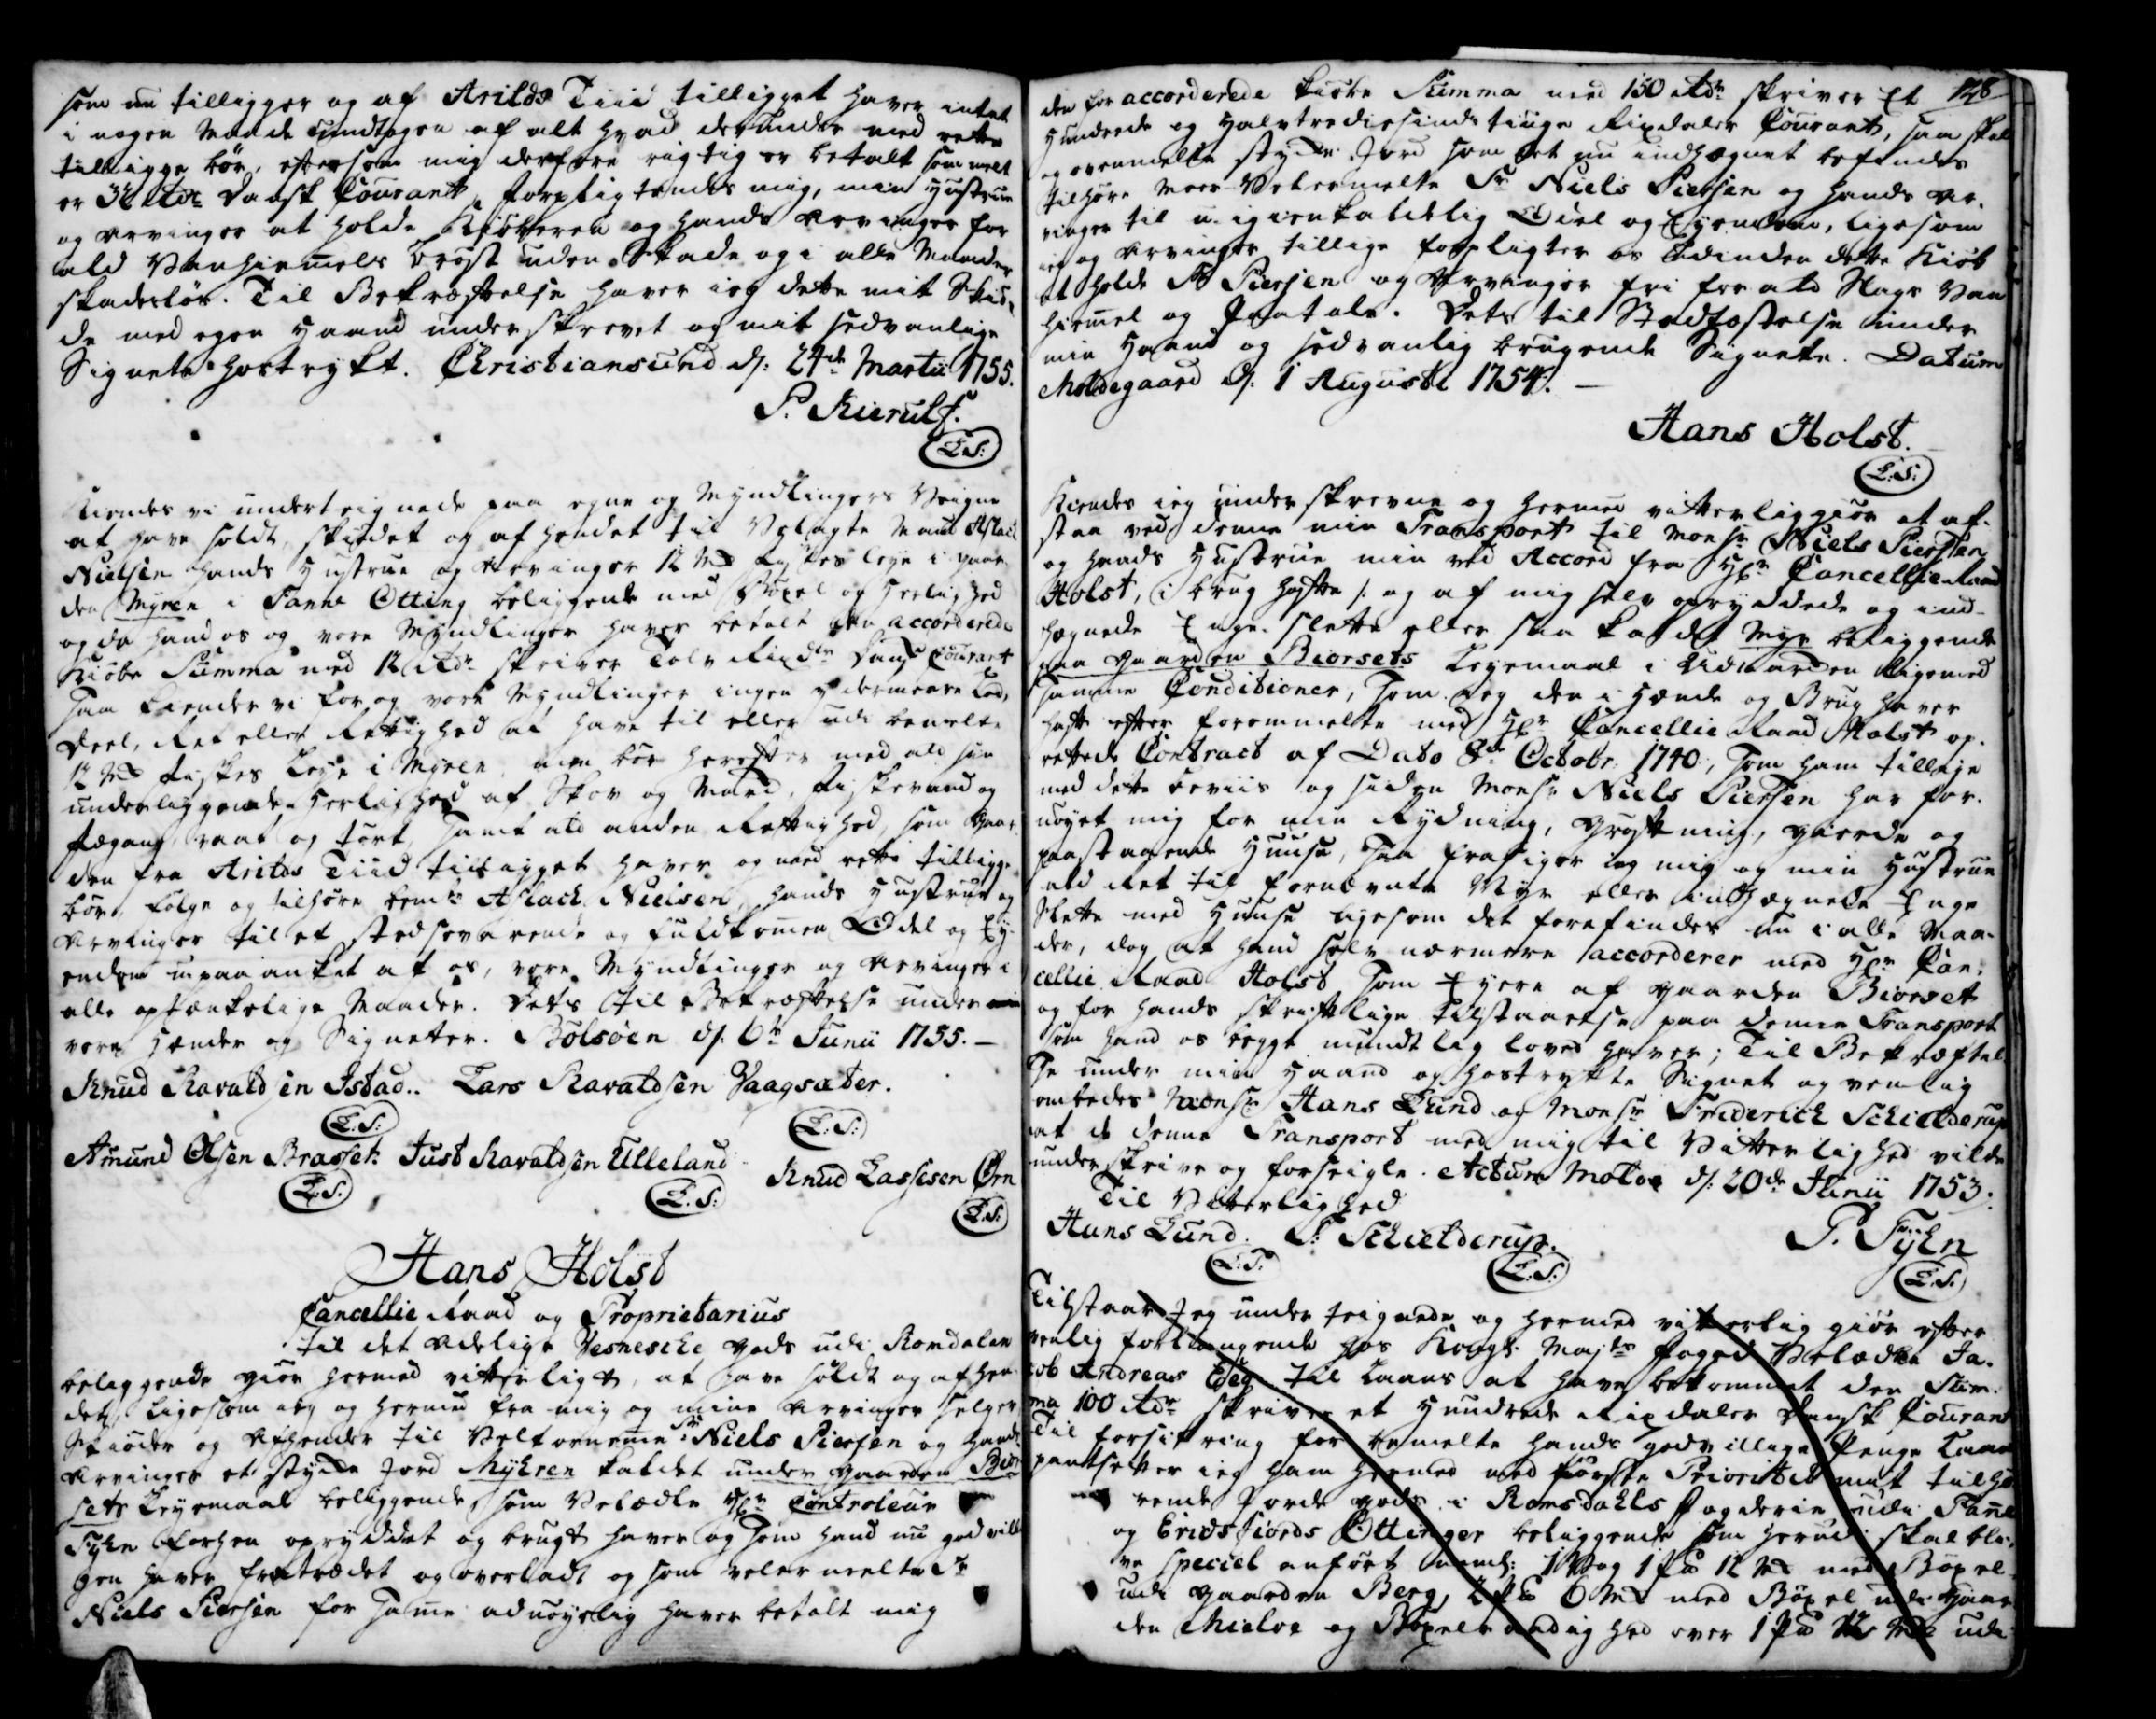 som nu tilligger og af Arilds Tiid tilligget haver intet
i nogen Maade undtagen af alt hvad derunder med rette
tilligge bör, eftersom mig derfore rigtig er betalt som melt
er Rdr Dansk Courant, forpligtendes mig, min Hustrue
og Arvinger at holde Kiöberen og hands Arvinger for
ald Vanhiemels bröst uden Skade og i alle Maader
skadeslös. Til Bekræftelse haver ieg dette mit Skiö-
de med egen Haand underskrevet og mit sædvanlige
Signete hostrykt. Christiansund d: 24de Martii 1755.
P. Kierulf.
L.S:
Kiendes vi underteignede paa egne og Myndlingers Veigne
at have soldt, skiödet og afhendet til Velagte Mand Aslach
Nielsen hands Hustrue og Arvinger 12 Mk Fiskes leye i gaar-
den Myren i Fanne Otting beliggende med Böxel og Herlighed
og da hand os og vore Myndlinger haver betalt den accorderede
Kiöbe Summa med 12 Rdr skriver Tolv Rixdr Dansk Courant
Saa kiender vi for og vore Myndlinger ingen ydermeere Lod,
Deel, Ret eller Rettighed at have til eller udi bemelte
12 Mk Fiskes Leye i Myren, men bör herefter med ald sin
underliggende Herlighed af Skov og Mark, Fiskevand og
Fægang vaat og tört, samt ald anden Rettighed, som gaar-
den fra Arilds Tiid tilligget haver og med rette tilligge
bör, fölge og tilhöre bemte Aslach Nielsen, hands Hustrue og
Arvinger til et stedsevarende og fuldkommen Odel og Ey-
endom upaaanket af os, vore Myndlinger og Arvinger i
alle optænkelige Maader. Dets til Bekræftelse under
vore Hænder og Signeter. Bolsöen d: 6te Junii 1755. —
Knud Ravaldsen Istad.. Lars Ravaldsen Vaagsæter.
L.S: L.S:
Amund Olsen Brasset. Just Ravaldsen Ulleland
Knud Lassesen Örn
L.S: L.S: L.S:
Hans Holst
Cancellie Raad og Proprietarius
til det Adelige Vesnesche gods udi Romsdalen
beliggende giör hermed vitterligt, at have soldt og afhen-
det, ligesom ieg og hermed fra mig og mine Arvinger selger
Skiöder og Afhender til Velfornemme Sr Niels Piersen og hands
Arvinger et stykke Jord Myhren kaldet under gaarden Biör-
sets Leyemaal beliggende, som Velædle Hr Controleur
Fyhn forhen opryddet og brugt haver og som hand nu godvilli-
gen haver fratrædet og overladt og som velermeelte Sr
Niels Piersen for Samme adnöyelig haver betalt mig
148
den for accorderede kiöbe Summa med 150 Rdr skriver Et
Hundrede og Halvtrediesindstiuge Rixdaler Courant, saa skal
og ovenmelte stykke Jord som det nu indhægnet befindes
tilhöre Meer-Velermelte Sr Niels Piersen og hands Ar-
vinger til uigienkaldelig Odel og Eyendom, ligesom
ieg og Arvinger tillige forpligter os Indinden dette Kiöb
at holde Sr Piersen og Arvinger fri for ald Slags Van
hiemel og Paatale. Dets til Stadfæstelse under
min Haand og sedvanlig brugende Signete. Datum
Moldegaard d: 1 Augusti 1754. —
Hans Holst.
L.S:
Kiendes ieg underskrevne og hermed vitterliggiör at af-
staa ved denne min Transport til Monsr Niels Piersen
og hands Hustrue min ved Accord fra Hr Cancellie Raad
Holst, i brug hafte /: og af mig selv opryddede og ind-
hægnede Enge-Slette eller saa kaldet Myr beliggende
paa gaarden Biorsets Leyemaal i ligemed
samme Conditioner, som ieg den i Hænde og Brug haver
haft efter forommelte med Hr Cancellie Raad Holst op-
rettede Contract af Dato 8de Octobr. 1740, som ham tillige
med dette beviis og siden Monsr Niels Piersen har for-
nöyet mig for min Rydning, gröftning, gierde og
paastagende Huuse, saa frasiger ieg mig og min Hustrue
ald Ret til fornævnte Myr eller indhægnede Enge
Slette med Huuse ligesom det forefindes nu i alle Maa-
der, dog at hand selv nærmere accorderer med Hr Can-
cellie Raad Holst som Eyere af gaarden Biorset
og for hands skriftlige tilstaaelse paa denne Transport
som hand os begge mundtlig loved haver; Til Bekræftel-
se under min Haand og hostrykte Signet og venlig
ombedes Monsr Hans Lund og Monsr Friderich Schielderup
at de denne Transport med mig til Vitterlighed vilde
underskrive og forseigle. Actum Molde d: 20de Junii 1753.
Til Vitterlighed
Hans Lund. F. Schielderup. P. Fyhn
L.S: L.S: L.S:
Tilstaar Jeg underteignede og hermed vitterlig giör efter
venlig forlangende hos Kongl. Majts foged Velædle Ja-
cob Andreas Eeg til Laans at have bekommet den Sum-
ma 100 Rdr skriver et Hundrede Rixdaler Dansk Courant
Til forsikring for bemelte hands godvillige Penge Laan
pantsetter ieg ham hermed med förste Prioritet mit tilhö-
rende Jorde gods i Romsdahls fogderie udi Fanne
og Eridsfiords Ottinger beliggende som herudi skal bli-
ve speciel anfört nemlig: 1 Vog 1 Pd 12 Mk med Böxel
udi gaarden Berg, 2 Pd 6 Mk med Böxel udi gaar-
den Mielve og Böxelraadighed over 1 Pd udi